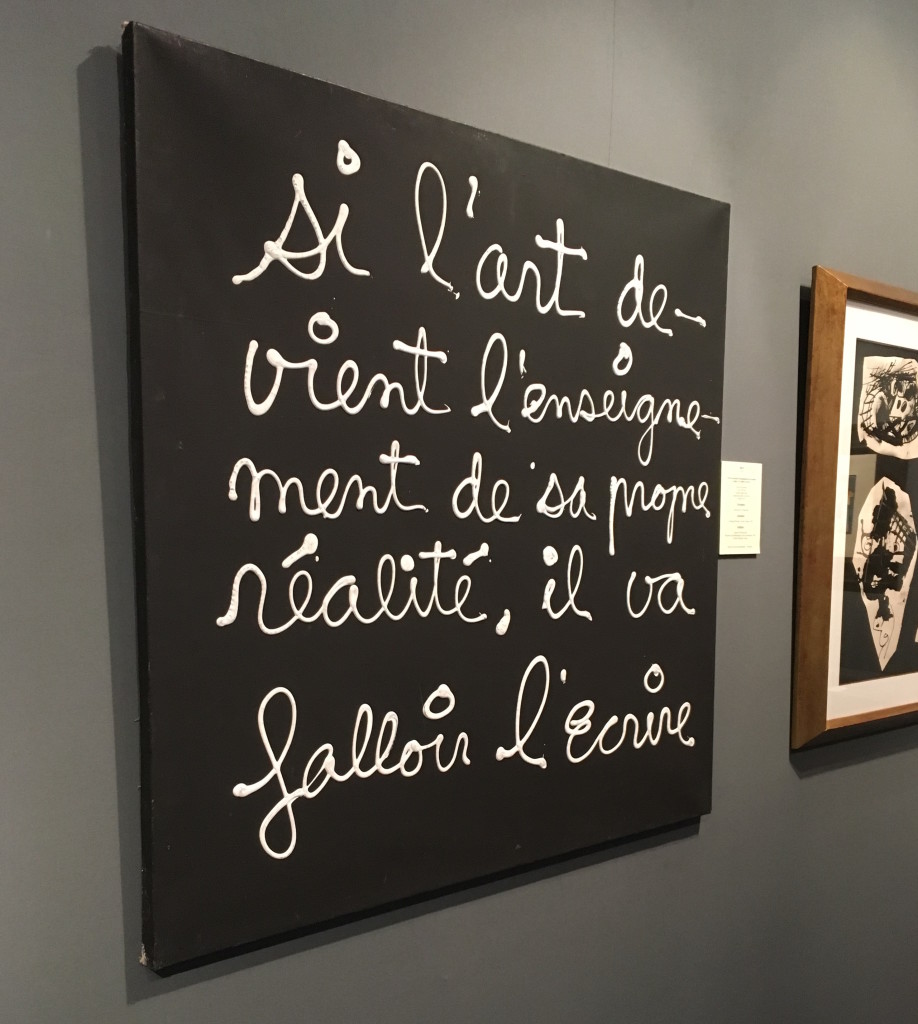 si l'art de-
vient l'enseigne-
ment de sa propre
réalité, il va
falloir l'Ecrire